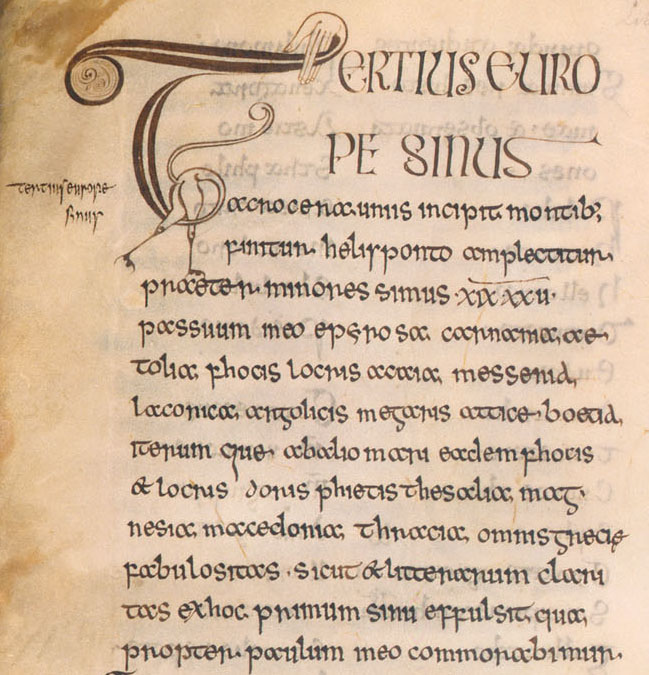 TERTIUS EURO
PE SINUS
tertius europe
sinus
acrocerauniis incipit montib;
finitur helisponto amplectitur
praeter minores sinus ·XIX·XXU·
passuum in eo epyrosa carnania ae
tolia phocis locris acaia messenia
laconica argolicis megaris attice boetia,
iterum que abalio mari eadem phocis
& locris doris phietis thesalia mag·
nesia macedonia thracia omnis grecię
fabulositas · sicut & litterarum clari
tas exhoc primum sinu effulsit qua
propter paulum in eo commorabimur·